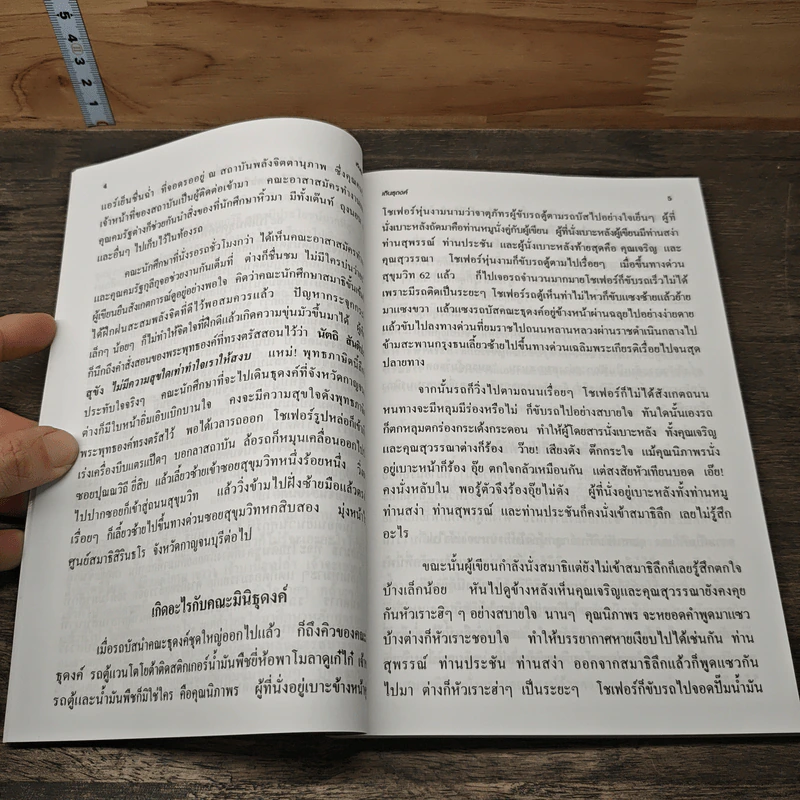 5
4
3
2
1
4
แอร์เย็นชื่นฉ่ำ ที่จอดรออยู่ ณ สถาบันพลังจิตตานุภาพ ซึ่งคุณ
เจ้าหน้าที่ของสถาบันเป็นผู้ติดต่อเช่ามา คณะอาสาสมัครทำงาน
คุณคมรัฐต่างก็ช่วยกันนำสิ่งของที่นักศึกษาหิ้วมา มีทั้งเต็นท์ ถุงนอน
และอื่นๆ ไปเก็บไว้ในท้องรถ
คณะนักศึกษาที่นั่งรอรถชั่วโมงกว่า ได้เห็นคณะอาสาสมัคร
และคุณคมรัฐกุลีกุจอช่วยงานกันเต็มที่ ต่างก็ชื่นชม ไม่มีใครบ่น
ผู้เขียนยืนสังเกตการณ์ดูอยู่อย่างพอใจ คิดว่าคณะนักศึกษาสมาธิ
ได้ฝึกฝนสะสมพลังจิตที่ดีไว้พอสมควรแล้ว ปัญหากระจุกกระ
เล็กๆ น้อยๆ ก็ไม่ทำให้จิตใจที่ฝึกดีแล้วเกิดความขุ่นมัวขึ้นมาได้
ก็นึกถึงคำสั่งสอนของพระพุทธองค์ที่ทรงตรัสสอนไว้ว่า นัตถิ สันติ
สุขัง ไม่มีความสุขใดเท่าทำใจเราให้สงบ แหม่! พุทธภาษิตนี้
ประทับใจจริงๆ คณะนักศึกษาที่จะไปเดินธุดงค์ที่จังหวัดกาญจน
ต่างก็มีใบหน้าอิ่มเอิบเบิกบานใจ คงจะมีความสุขใจดังพุทธภา
พระพุทธองค์ทรงตรัสไว้ พอได้เวลารถออก โชเฟอร์รูปหล่อก็
เร่งเครื่องบีบแตรแป๊ดๆ บอกลาสถาบัน ล้อรถก็หมุนเคลื่อนออก
ซอยปุณณวิถี ยี่สิบ แล้วเลี้ยวซ้ายเข้าซอยสุขุมวิทหนึ่งร้อยหนึ่ง
ไปปากซอยก็เข้าสู่ถนนสุขุมวิท แล้ววิ่งข้ามไปฝั่งซ้ายมือแล้ว
เรื่อยๆ ก็เลี้ยวซ้ายไปขึ้นทางด่วนซอยสุขุมวิทหกสิบสอง มุ่งหน้า
ศูนย์สมาธิสิรินธโร จังหวัดกาญจนบุรีต่อไป
เกิดอะไรกับคณะมินิธุดงค์
เมื่อรถบัสนำคณะธุดงค์ชุดใหญ่ออกไปแล้ว ก็ถึงคิวของคณะ
ธุดงค์ รถตู้แวนโตโยต้าติดสติกเกอร์น้ำมันพืชยี่ห้อพาโมลาดูเก๋ไก๋
รถตู้และน้ำมันพืชก็มิใช่ใคร คือคุณนิภาพร ผู้ที่นั่งอยู่เบาะข้างหน้า
เดินธุดงค์
5
โชเฟอร์หุ่นงามนามว่าจาตุภัทรผู้ขับรถตู้ตามรถบัสไปอย่างใจเย็นๆ ผู้ที่
นั่งเบาะหลังถัดมาคือท่านหมูนั่งอยู่กับผู้เขียน ผู้ที่นั่งเบาะหลังผู้เขียนมีท่านสง่า
ท่านสุพรรณ์ ท่านประชัน และผู้นั่งเบาะหลังท้ายสุดคือ คุณเจริญ และ
คุณสุวรรณา โชเฟอร์หุ่นงามก็ขับรถตู้ตามไปเรื่อยๆ เมื่อขึ้นทางด่วน
สุขุมวิท 62 แล้ว ก็ไปเจอรถจำนวนมากมายโชเฟอร์ก็ขับรถเร็วไม่ได้
เพราะมีรถติดเป็นระยะๆ โชเฟอร์รถตู้เห็นท่าไม่ไหวก็ขับแซงซ้ายแล้วย้าย
มาแซงขวา แล้วแซงรถบัสคณะธุดงค์อยู่ข้างหน้าผ่านฉลุยไปอย่างง่ายดาย
แล้วขับไปลงทางด่วนที่ยมราชไปถนนหลานหลวงผ่านราชดำเนินกลางไป
ข้ามสะพานกรุงธนเลี้ยวซ้ายไปขึ้นทางด่วนเฉลิมพระเกียรติเรื่อยไปจนสุด
ปลายทาง
จากนั้นรถก็วิ่งไปตามถนนเรื่อยๆ โชเฟอร์ก็ไม่ได้สังเกตถนน
หนทางจะมีหลุมมีร่องหรือไม่ ก็ขับรถไปอย่างสบายใจ ทันใดนั้นเองรถ
ก็ตกหลุมตกร่องกระเด้งกระดอน ทำให้ผู้โดยสารนั่งเบาะหลัง ทั้งคุณเจริญ
และคุณสุวรรณาต่างก็ร้อง ว๊าย! เสียงดัง ตึกกระใจ แม้คุณนิภาพรนั่ง
อยู่เบาะหน้าก็ร้อง อุ๊ย ตกใจกลัวเหมือนกัน แต่สงสัยหัวเทียนบอด เอ๊ย!
คงนั่งหลับใน พอรู้ตัวจึงร้องอุ๊ยไม่ดัง ผู้ที่นั่งอยู่เบาะหลังทั้งท่านหมู
ท่านสง่า ท่านสุพรรณ์ และท่านประชันก็คงนั่งเข้าสมาธิลึก เลยไม่รู้สึก
อะไร
ขณะนั้นผู้เขียนกำลังนั่งสมาธิแต่ยังไม่เข้าสมาธิลึกก็เลยรู้สึกตกใจ
บ้างเล็กน้อย หันไปดูข้างหลังเห็นคุณเจริญและคุณสุวรรณายังคงคุย
กันหัวเราะฮิๆ ๆ อย่างสบายใจ นานๆ คุณนิภาพร จะหยอดคำพูดมาแซว
บ้างต่างก็หัวเราะชอบใจ ทำให้บรรยากาศหายเงียบไปได้เช่นกัน ท่าน
สุพรรณ์ ท่านประชัน ท่านสง่า ออกจากสมาธิลึกแล้วก็พูดแซวกัน
ไปมา ต่างก็หัวเราะฮ่าๆ เป็นระยะๆ โชเฟอร์ก็ขับรถไปจอดปั๊มน้ำมัน